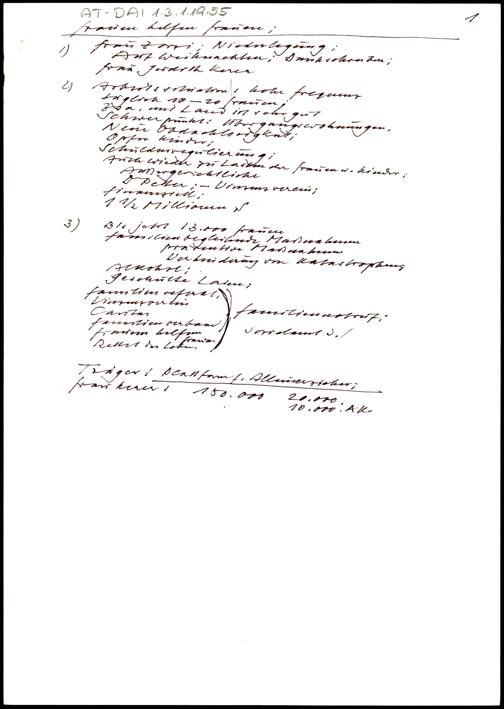 AT-DAI 1.3.1.1955
1
Frauen helfen Frauen;
1) Frau Zorzi; Niederlegung;
Auf Weihnachten; Dankschreiben;
Frau Judith Kerer
2) Arbeitssituation: hohe Frequenz
täglich 10-20 Frauen;
Zsa. mit Land ist sehr gut
Schwerpunkt: Übergangswohnungen.
Neue Obdachlosigkeit;
Opfer Kinder;
Schuldenregulierung;
Auch wieder zu Lasten der Frauen u. Kinder;
Außergerichtliche
D Peter; - Vinzenzverein;
Finanziell;
1 1/2 Millionen S
3) Bis jetzt 13.000 Frauen
Familienbegleitende Maßnahmen
präventive Maßnahmen
Verhinderung von Katastrophen
Alkohol;
Geschulte Laien;
Familienreferat,
Vinzenzverein
Caritas
Familienverband
Frauen helfen Frauen
Rettet das Leben
Familiennotruf;
Sozialamt
Träger: Plattform f. Alleinerzieher;
Frau Kerer: 150.000 20.000
10.000. AK.